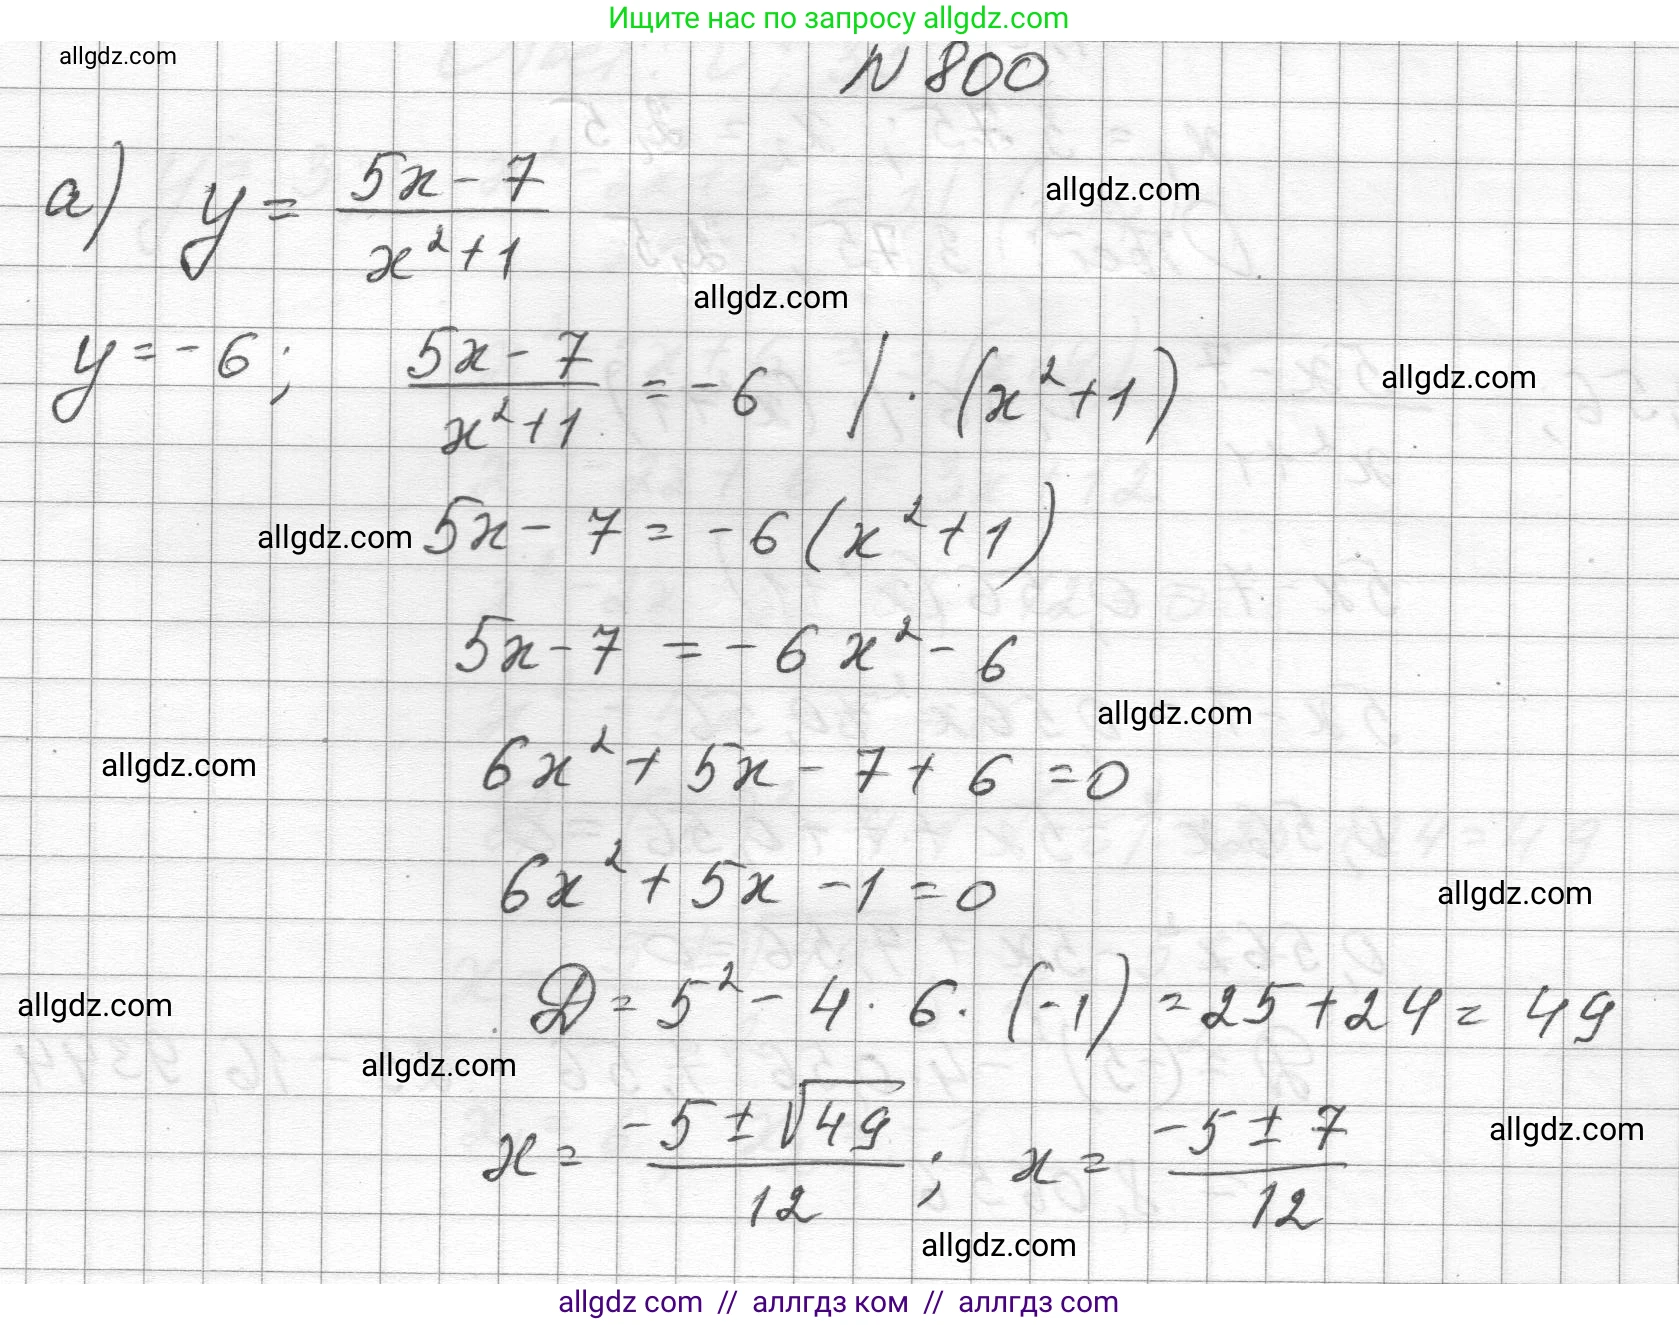 Ищите нас по запросу allgdz.com
allgdz.com
N 800
а) y = (5x - 7)/(x² + 1)
allgdz.com
allgdz.com
y = - 6 ; (5x - 7)/(x² + 1) = - 6 | · (x² + 1)
allgdz.com
allgdz.com
5x - 7 = - 6 (x² + 1)
5x - 7 = - 6 x² - 6
allgdz.com
allgdz.com
6x² + 5x - 7 + 6 = 0
6x² + 5x - 1 = 0
allgdz.com
allgdz.com
D = 5² - 4 · 6 · (-1) = 25 + 24 = 49
allgdz.com
x = (-5 ± √49)/12 ; x = (-5 ± 7)/12
allgdz.com
allgdz.com
allgdz com // аллгдз ком // аллгдз com